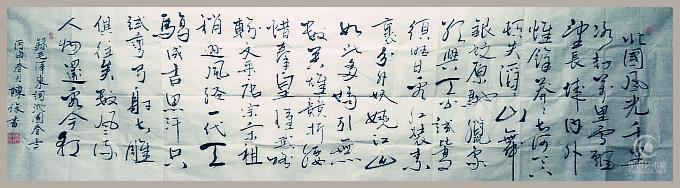 北国风光千里
冰封万里雪飘
望长城内外
惟馀莽莽大河上下
顿失滔滔山舞
银蛇原驰蜡象
欲与天公试比高
须晴日看红装素
裹分外妖娆江山
如此多娇引无
数英雄竞折腰
惜秦皇汉武略输
文采唐宗宋祖
稍逊风骚一代天
骄成吉思汗只
识弯弓射大雕
俱往矣数风流
人物还看今朝
录毛泽东词沁园春雪
丙申春月陈俊书